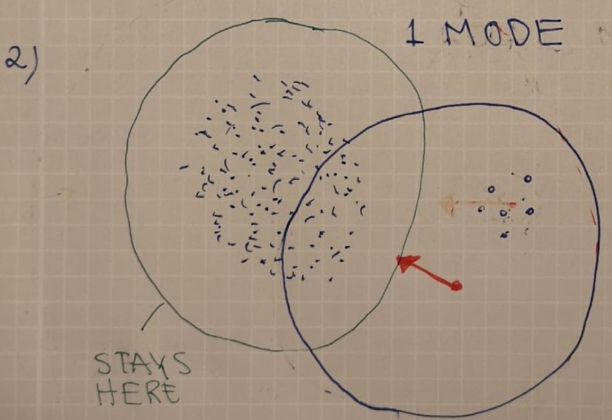 2)
1 MODE
STAYS
HERE